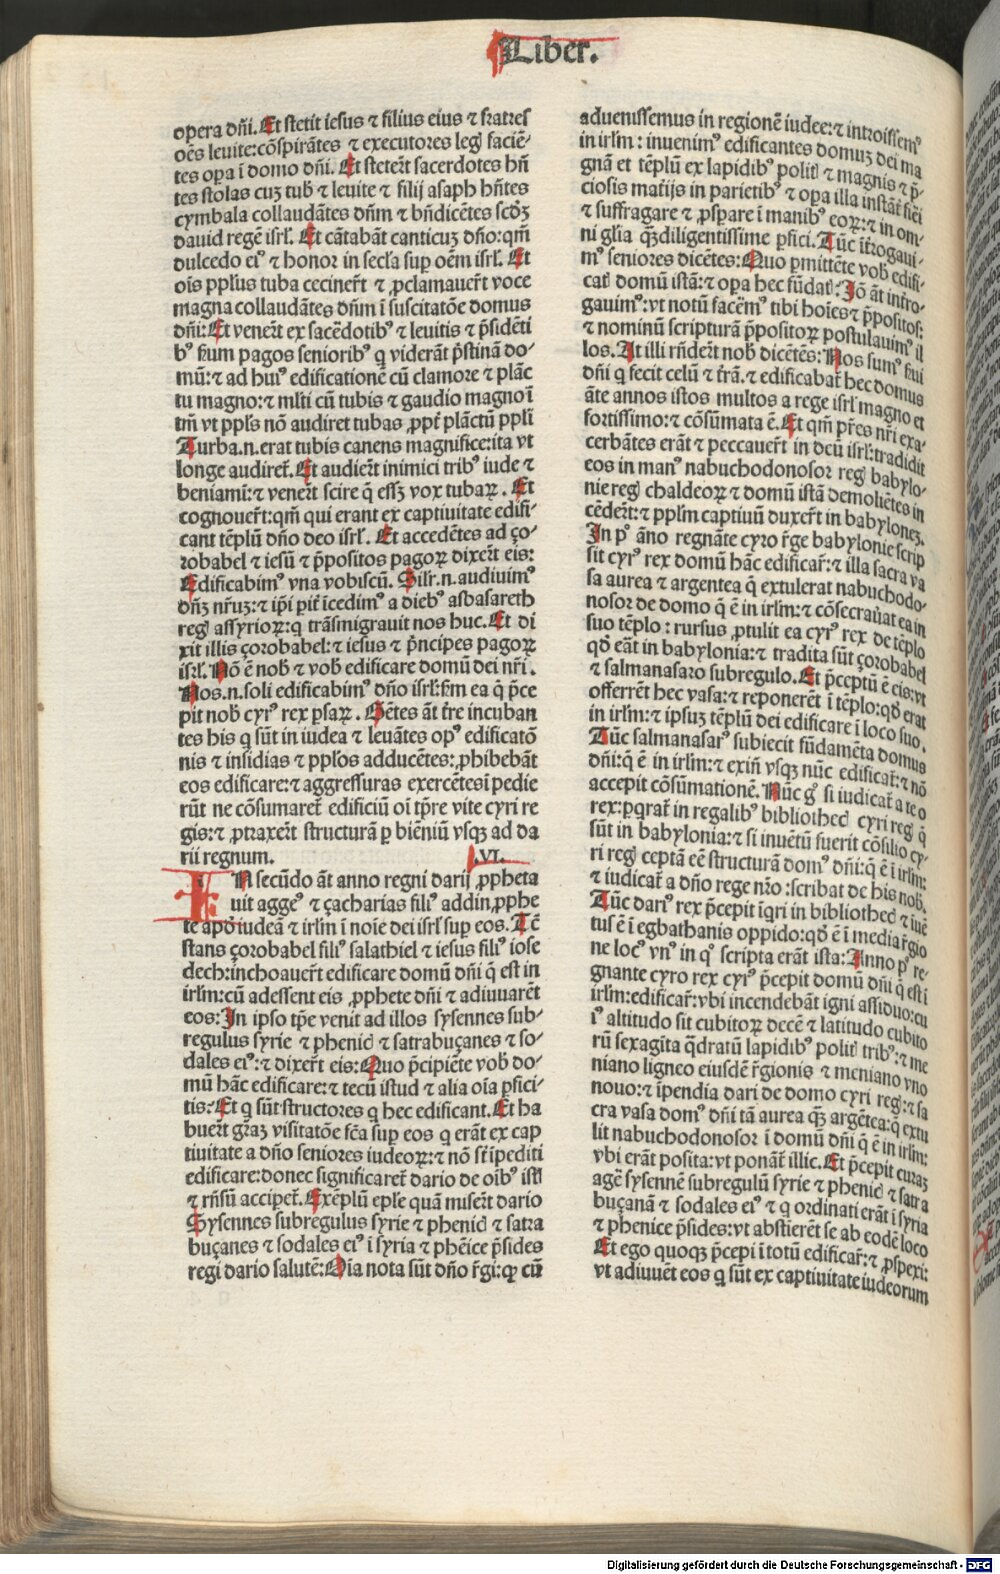 Liber.
opera dñi. Et stetit iesus ⁊ filius eius ⁊ fratres
oẽs leuite: cõspirãtes ⁊ executores legꝭ faciẽ-
tes oꝑa ĩ domo dñi. Et stetert̃ sacerdotes hñ
tes stolas cuȝ tubꝭ ⁊ leuite ⁊ filij asaph hñtes
cymbala collaudãtes dñm ⁊ bñdicẽtes scdȝ
dauid regẽ isrl̃. Et cãtabãt canticuȝ dño: qm̃
dulcedo eiꝰ ⁊ honor in secl̃a suꝑ oẽm isrl̃. Et
ois ppl̃us tuba cecinerũt ⁊ ꝓclamauert̃ voce
magna collaudãtes dñm ĩ suscitatõe domus
dñi: Et venert̃ ex sacẽdotibꝰ ⁊ leuitis ⁊ p̃sidẽti
bꝰ ẜm pagos senioribꝰ q̃ viderãt p̃stinã do-
mũ: ⁊ ad huiꝰ edificationẽ cũ clamore ⁊ plãc
tu magno: ⁊ ml̃ti cũ tubis ⁊ gaudio magno ĩ
tm̃ vt ppl̃s nõ audiret tubas ꝓpt̃ plãctũ ppl̃i
Turba.n.erat tubis canens magnifice: ita vt
longe audiret̃. Et audiert̃ inimici tribꝰ iude ⁊
beniami: ⁊ venert̃ scire q̃ essȝ vox tubaꝝ. Et
cognouert̃: qm̃ qui erant ex captiuitate edifi-
cant tẽplũ dño deo isrl̃. Et accedẽtes ad ço-
robabel ⁊ iesũ ⁊ p̃positos pagoꝝ dixert̃ eis:
Edificabimꝰ vna vobiscũ. Silr̃.n.audiuimꝰ
dñȝ nr̃uȝ: ⁊ ip̃i pit̃ ĩcedimꝰ a diebꝰ asbasareth
regꝭ assyrioꝝ: q̃ trãsmigrauit nos huc. Et di
xit illis çorobabel: ⁊ iesus ⁊ p̃ncipes pagoꝝ
isrl̃. Nõ ẽ nobꝭ ⁊ vobꝭ edificare domũ dei nr̃i.
Nos.n.soli edificabimꝰ dño isrl̃: ẜm ea q̃ p̃ce
pit nobꝭ cyrꝰ rex psaꝝ. Gẽtes ãt tr̃e incuban
tes his q̃ sũt in iudea ⁊ leuãtes opꝰ edificatõ
nis ⁊ insidias ⁊ ppl̃os adducẽtes: ꝓhibebãt
eos edificare: ⁊ aggressuras exercẽtes ĩpedie
rũt ne cõsumaret̃ edificiũ oĩ tp̃re vite cyri re
gis: ⁊ ꝓtraxert̃ structurã ꝑ biẽniũ vsqȝ ad da
rii regnum. .VI.
IN secũdo ãt anno regni darij ꝓpheta
uit aggeꝰ ⁊ çacharias filiꝰ addin ꝓphe
te apď iudeã ⁊ irl̃m ĩ noĩe dei isrl̃ suꝑ eos. Tẽ
stans çorobabel filiꝰ salathiel ⁊ iesus filiꝰ iose
dech: inchoauert̃ edificare domũ dñi q̃ est in
irl̃m: cũ adessent eis ꝓphete dñi ⁊ adiuuarẽt
eos: In ipso tp̃e venit ad illos sysennes sub-
regulus syrie ⁊ phenicꝭ ⁊ satrabuçanes ⁊ so-
dales eiꝰ: ⁊ dixert̃ eis: Quo p̃cipiẽte vobꝭ do-
mũ hãc edificare: ⁊ tectũ istud ⁊ alia oĩa ꝑfici-
tis: Et q̃ sũt structores q̃ hec edificant. Et ha
buert̃ gr̃aȝ visitatõe fc̃a suꝑ eos q̃ erãt ex cap
tiuitate a dño seniores iudeoꝝ: ⁊ nõ st̃ ĩpediti
edificare: donec significaret̃ dario de oĩbꝰ istꝭ
⁊ rñsũ acciperet̃. Exẽplũ epl̃e quã misert̃ dario
Sysennes subregulus syrie ⁊ phenicꝭ ⁊ satra
buçanes ⁊ sodales eiꝰ ĩ syria ⁊ phẽice p̃sides
regi dario salutẽ: Oĩa nota sũt dño r̃gi: qꝫ cũ
aduenissemus in regionẽ iudee: ⁊ introissemꝰ
in irl̃m: inuenimꝰ edificantes domuȝ dei ma
gnã et tẽplũ ex lapidibꝰ politꝭ ⁊ magnis ⁊ p̃-
ciosis mat̃ijs in parietibꝰ ⁊ oꝑa illa instãt̃ fieri
⁊ suffragare ⁊ ꝓsꝑare ĩ manibꝰ eoꝝ: ⁊ in om-
ni gl̃ia q̃ȝdiligentissime ꝑfici. Tũc ĩt̃rogaui-
mꝰ seniores dicẽtes: Quo ꝑmittẽte vobꝭ edifi-
catꝭ domũ istã: ⁊ oꝑa hec fũdatꝭ: Iõ ãt intro-
gauimꝰ: vt notũ facẽmꝰ tibi hoĩes ⁊ p̃positos:
⁊ nominũ scripturã p̃positoꝝ postulauimꝰ il
los. At illi rñdert̃ nobꝭ dicẽtes: Nos sumꝰ ẜui
dñi q̃ fecit celũ ⁊ tr̃ã. ⁊ edificabat̃ hec domus
ãte annos istos multos a rege isrl̃ magno et
fortissimo: ⁊ cõsũmata ẽ. Et qm̃ pr̃es nr̃i exa-
cerbãtes erãt ⁊ peccauert̃ in deũ isrl̃: tradidit
eos in manꝰ nabuchodonosor regꝭ babylo-
nie regꝭ chaldeoꝝ ⁊ domũ istã demoliẽtes in
cẽdert̃: ⁊ ppl̃m captiuũ duxert̃ in babylonẽȝ.
In pꝰ ãno regnãte cyro r̃ge babylonie scrip
sit cyrꝰ rex domũ hãc edificar̃: ⁊ illa sacra va
sa aurea ⁊ argentea q̃ extulerat nabuchodo-
nosor de domo q̃ ẽ in irl̃m: ⁊ cõsecrau̾at ea in
suo tẽplo: rursus ꝓtulit ea cyrꝰ rex de tẽplo
qď eãt in babylonia: ⁊ tradita sũt çorobabel
⁊ salmanasaro subregulo. Et p̃ceptũ ẽ eis: vt
offerrẽt hec vasa: ⁊ reponerẽt ĩ tẽplo: qď erat
in irl̃m: ⁊ ipsuȝ tẽplũ dei edificare ĩ loco suo.
Tũc salmanasarꝰ subiecit fũdamẽta domus
dñi: q̃ ẽ in irl̃m: ⁊ exiñ vsqȝ nũc edificat̃: ⁊ nõ
accepit cõsũmationẽ. Nũc gꝰ si iudicat̃ a te o
rex: ꝑqrat̃ in regalibꝰ bibliothecꝭ cyri regꝭ q̃
sũt in babylonia: ⁊ si inuẽtũ fuerit cõsilio cy-
ri regꝭ ceptã eẽ structurã domꝰ dñi: q̃ ẽ ĩ irl̃m:
⁊ iudicat̃ a dño rege nr̃o: scribat de his nobꝭ.
Tũc dariꝰ rex p̃cepit ĩqri in bibliothecꝭ ⁊ iuẽ
tus ẽ ĩ egbathanis oppido: qď ẽ ĩ media r̃gio
ne locꝰ vnꝰ in qꝰ scripta erãt ista: Anno pꝰ re-
gnante cyro rex cyrꝰ p̃cepit domũ dñi q̃ est ĩ
irl̃m: edificar̃: vbi incendebãt igni assiduo: cu
iꝰ altitudo sit cubitoꝝ decẽ ⁊ latitudo cubito
rũ sexagĩta q̃dratũ lapidibꝰ politꝭ tribꝰ: ⁊ me
niano ligneo eiusdẽ r̃gionis ⁊ meniano vno
nouo: ⁊ ĩpendia dari de domo cyri regꝭ: ⁊ sa
cra vasa domꝰ dñi tã aurea qȝ̃ argẽtea: q̃ extu
lit nabuchodonosor ĩ domũ dñi q̃ ẽ in irl̃m:
vbi erãt posita: vt ponãt̃ illic. Et p̃cepit curaȝ
agẽ sysennẽ subregulũ syrie ⁊ phenicꝭ ⁊ satra
buçanã ⁊ sodales eiꝰ ⁊ q̃ ordinati erãt ĩ syria
⁊ phenice p̃sides: vt abstierẽt se ab eodẽ loco
Et ego quoqȝ p̃cepi ĩ totũ edificar̃: ⁊ ꝓspexi:
vt adiuuẽt eos q̃ sũt ex captiuitate iudeorum
Digitalisierung gefördert durch die Deutsche Forschungsgemeinschaft - DFG